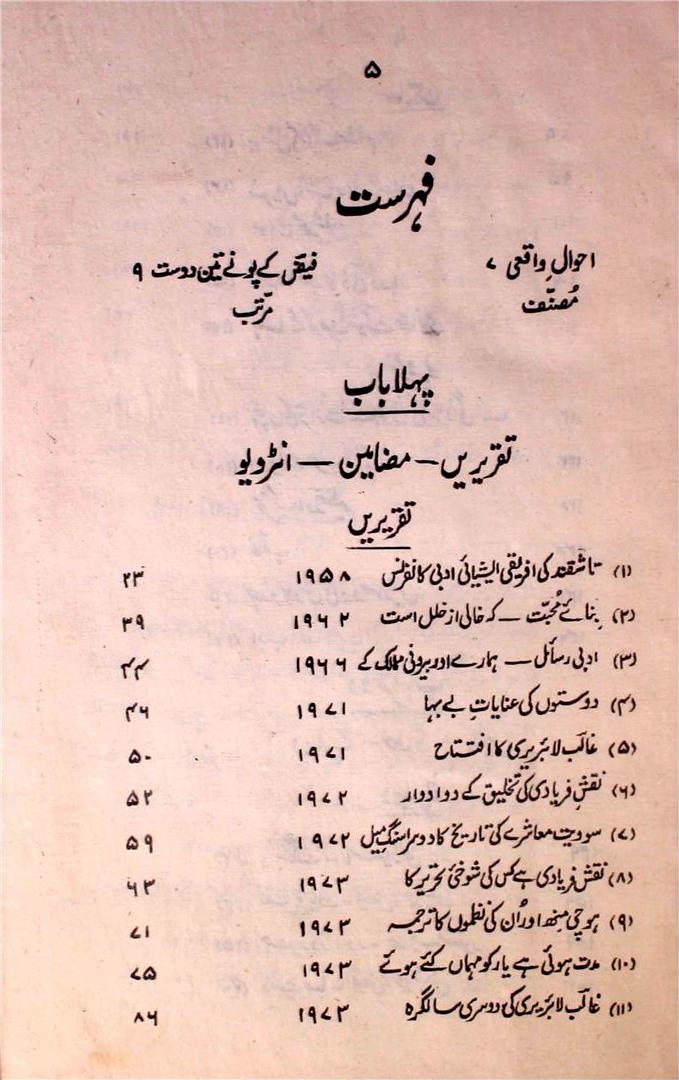 ۵
فہرست
احوالِ واقعی ۷ فیض کے پونے تین دوست ۹
مُصنّف مرتب
پہلا باب
تقریریں — مضامین — انٹرویو
تقریریں
(۱) تاشقند کی افریقی ایشیائی ادبی کانفرنس ۱۹۵۸ ۲۳
(۲) بِنائے مُحبّت — کہ خالی از خلل است ۱۹۶۲ ۳۹
(۳) ادبی رسائل — ہمارے اور بیرونی ممالک کے ۱۹۶۶ ۴۴
(۴) دوستوں کی عنایاتِ بے بہا ۱۹۷۱ ۴۶
(۵) غالب لائبریری کا افتتاح ۱۹۷۱ ۵۰
(۶) نقشِ فریادی کی تخلیق کے دو ادوار ۱۹۷۲ ۵۲
(۷) سوویت معاشرے کی تاریخ کا دوسرا سنگِ میل ۱۹۷۲ ۵۹
(۸) نقش فریادی ہے کس کی شوخیٔ تحریر کا ۱۹۷۳ ۶۳
(۹) ہو چی منھ اور اُن کی نظموں کا ترجمہ ۱۹۷۳ ۷۱
(۱۰) مدت ہوئی ہے یار کو مہماں کئے ہوئے ۱۹۷۳ ۷۵
(۱۱) غالب لائبریری کی دوسری سالگرہ ۱۹۷۳ ۸۶